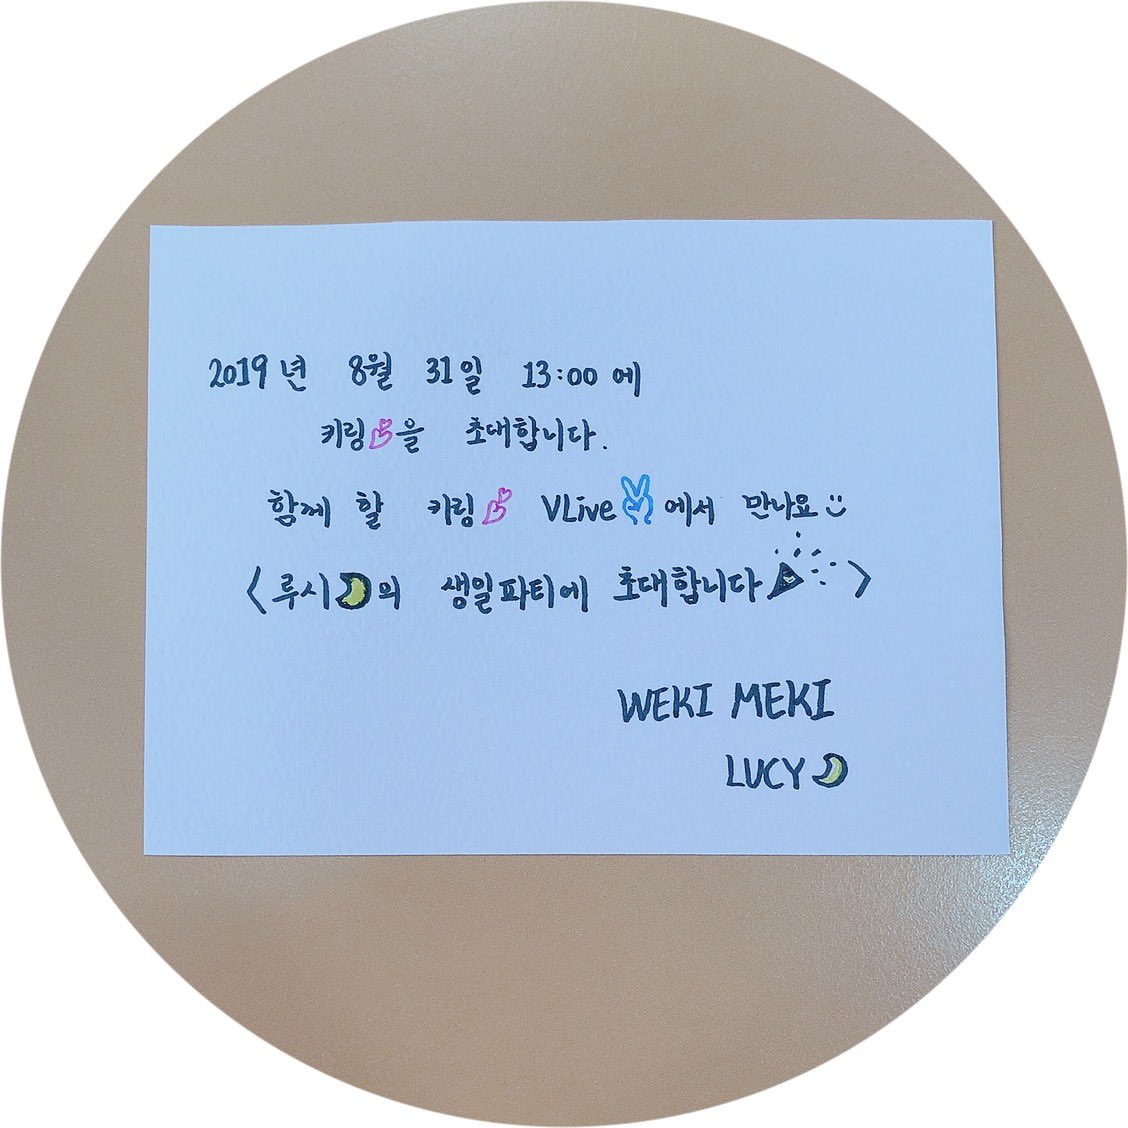 2019년 8월 31일 13:00에
키링을 초대합니다.
함께 할 키링 VLive에서 만나요
<루시의 생일파티에 초대합니다>
WEKI MEKI
LUCY